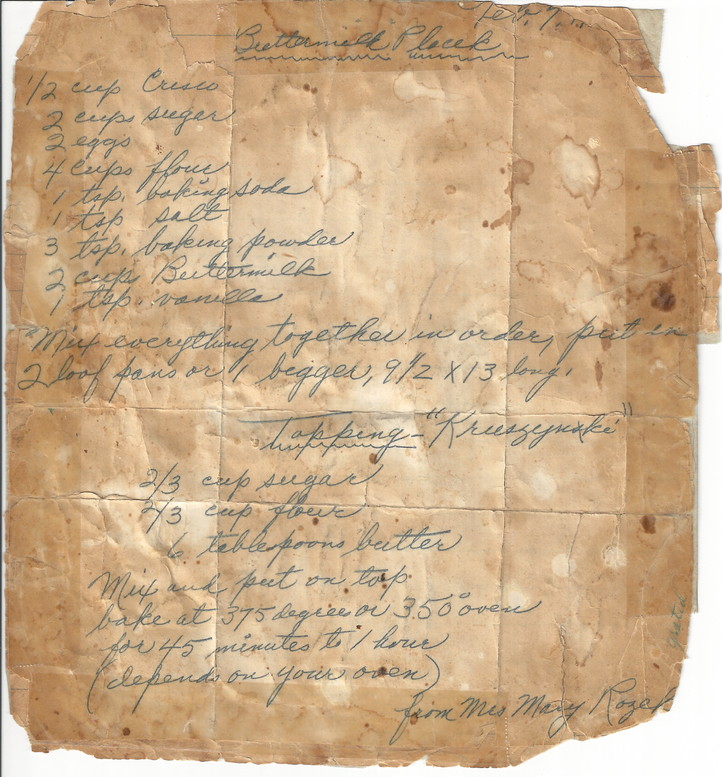 Feb. 7
Buttermilk Placek
1/2 cup Crisco
2 cups sugar
2 eggs
4 cups flour
1 tsp. baking soda
1 tsp salt
3 tsp. baking powder
2 cups Buttermilk
1 tsp vanilla
"Mix everything together in order, put in
2 loaf pans or 1 bigger, 9 1/2 X 13 long.
Topping - "Kruszynski"
2/3 cup sugar
2/3 cup flour
6 tablespoons butter
Mix and put on top
bake at 375 degrees or 350° oven
for 45 minutes to 1 hour
(depends on your oven)
from Mrs Mary Rozek